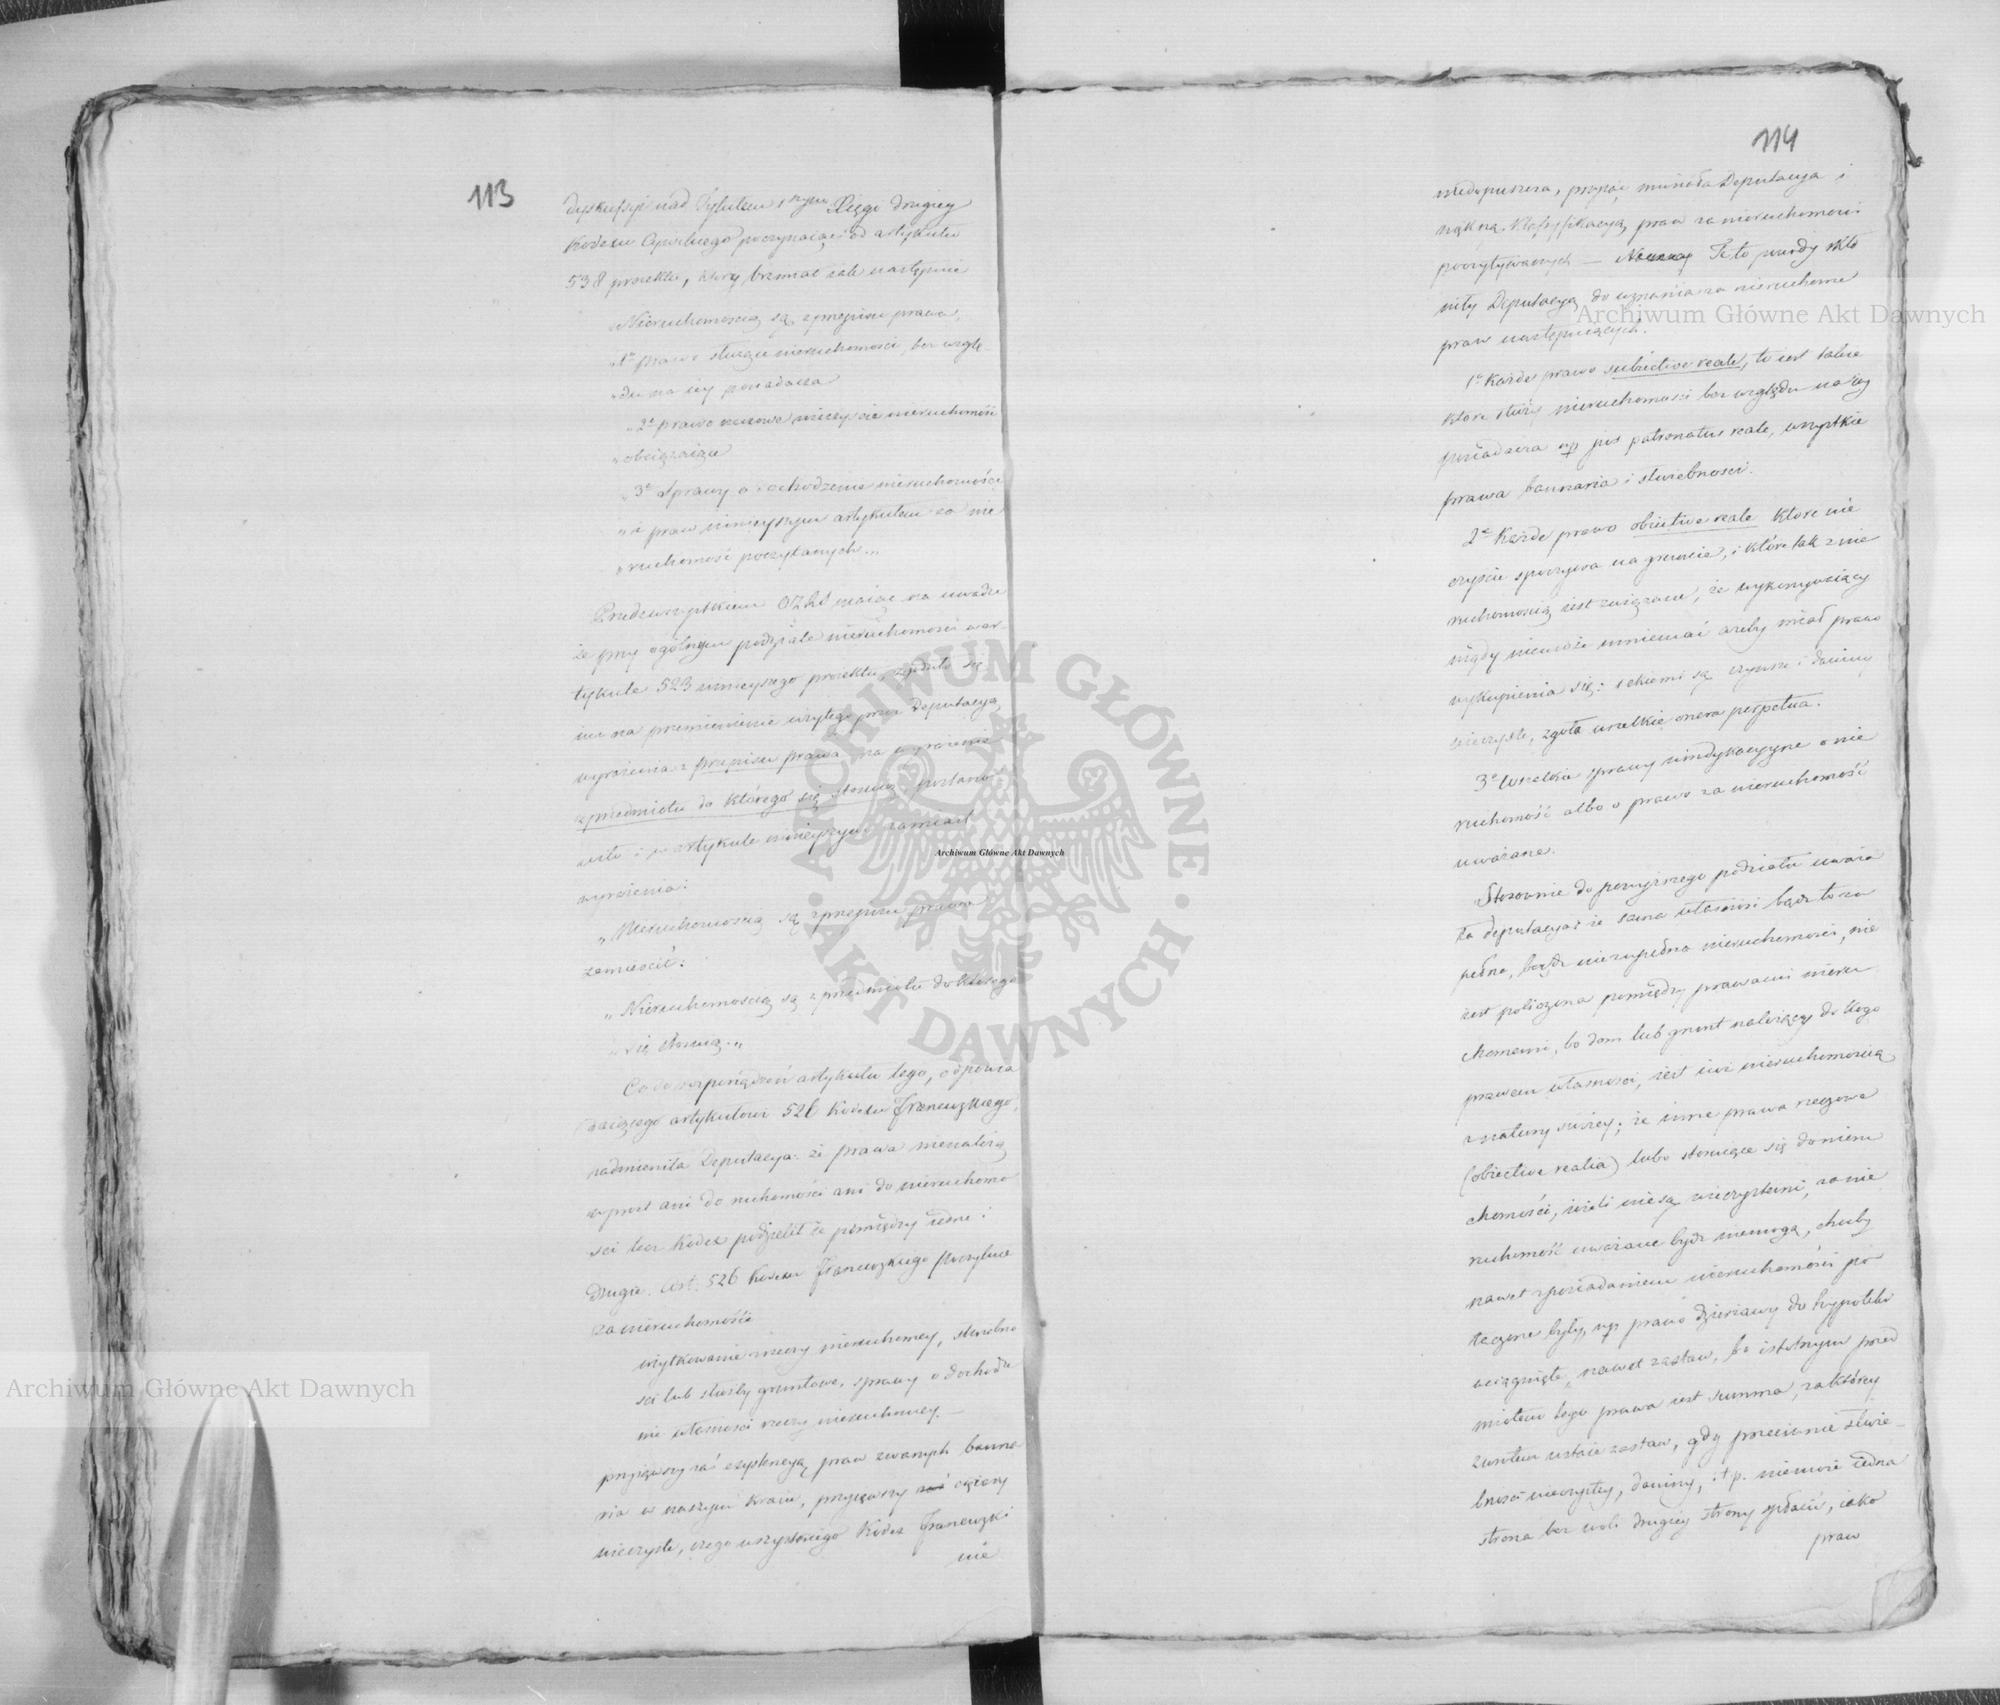 113
dyskussyi nad Tytułem 1szym Xięgi drugiey
Kodexu Cywilnego poczynaiąc od artykułu
538 proiektu, który brzmiał iak następuie
„Nieruchomością są z przepisu prawa,
„1e prawo służące nieruchomości, bez wzglę-
„du na iey posiadacza
„2e prawo rzeczowe wieczyście nieruchomość
„obciążaiące
„3e Sprawy o dochodzenie nieruchomości
„i praw ninieyszym artykułem za nie
„ruchomość poczytanych...
Przedewszystkiem maiąc na uwadze
że przy ogólnym podziale nieruchomości w ar-
tykule 523 ninieyszego proiektu, zgodzono się
iuż na przemienienie użytego przez Deputacyą
wyrażenia z przepisu prawa na wyrażenie
z przedmiotu do którego się stosuią postano-
wiło i w artykule ninieyszym zamiast
wyrażenia:
„Nieruchomością są z przepisu prawa
zamieścić:
„Nieruchomością są z przedmiotu do którego
„się stosuią.„
Co do rozporządzeń artykułu tego, odpowia
daiącego artykułowi 526 Kodexu Francuzkiego,
nadmieniła Deputacya: że prawa nienależą
wprost ani do ruchomości ani do nieruchomo
ści lecz Kodex podzielił ie pomiędzy iedne i
drugie. Art. 526 Kodexu Francuzkiego poczytuie
za nieruchomość
użytkowanie rzeczy nieruchomey, służebno
ści lub służby gruntowe, sprawy o dochodze
nie własności rzeczy nieruchomey.—
przyiąwszy zaś exystencyą praw zwanych banna
ria w naszym kraiu, przyiąwszy ciężary
wieczyste, czego wszystkiego Kodex Francuzki
nie
114
niedopuszcza, przyiąć musiała Deputacya i
inną klassyfikacyą praw za nieruchomości
poczytywanych — Te to powody skło
niły Deputacyą do uznania za nieruchome
praw następuiących.
1e Każde prawo subiective reale, to iest takie
które służy nieruchomości bez względu na iey
posiadacza np jus patronatus reale, wszystkie
prawa bannaria i służebności.
2e Każde prawo obiective reale które wie
czyście spoczywa na gruncie, i które tak z nie
ruchomością iest związane, że wykonywaiący
nigdy niemoże mniemać ażeby miał prawo
wykupienia się: takiemi są czynsze i daniny
wieczyste, zgoła wszelkie onera perpetua.
3e Wszelkie sprawy windykacyyne o nie
ruchomość albo o prawo za nieruchomość
uważane.
Stosownie do powyższego podziału uważa
ła deputacya: że sama własność bądź to zu
pełna, bądź niezupełna nieruchomości, nie
iest policzona pomiędzy prawami nieru
chomemi, bo dom lub grunt należący do kogo
prawem własności, iest iuż nieruchomością
z natury swoiey; że inne prawa rzeczowe
(obiective realia) lubo stosuiące się do nieru
chomości, ieżeli nie są wieczystemi, za nie
ruchomość uważane bydź niemogą, choćby
nawet z posiadaniem nieruchomości po
łączone były, np prawo dzierżawy do hypoteki
wciągnięte, nawet zastaw, bo istotnym przed
miotem tego prawa iest summa, za którey
zwrotem ustaie zastaw, gdy przeciwnie służe-
bność wieczystey, daniny, itp. niemoże iedna
strona bez woli drugiey strony spłacić, iako
praw
Archiwum Główne Akt Dawnych
Archiwum Główne Akt Dawnych
Archiwum Główne Akt Dawnych
ARCHIWUM GŁÓWNE · AKT DAWNYCH ·